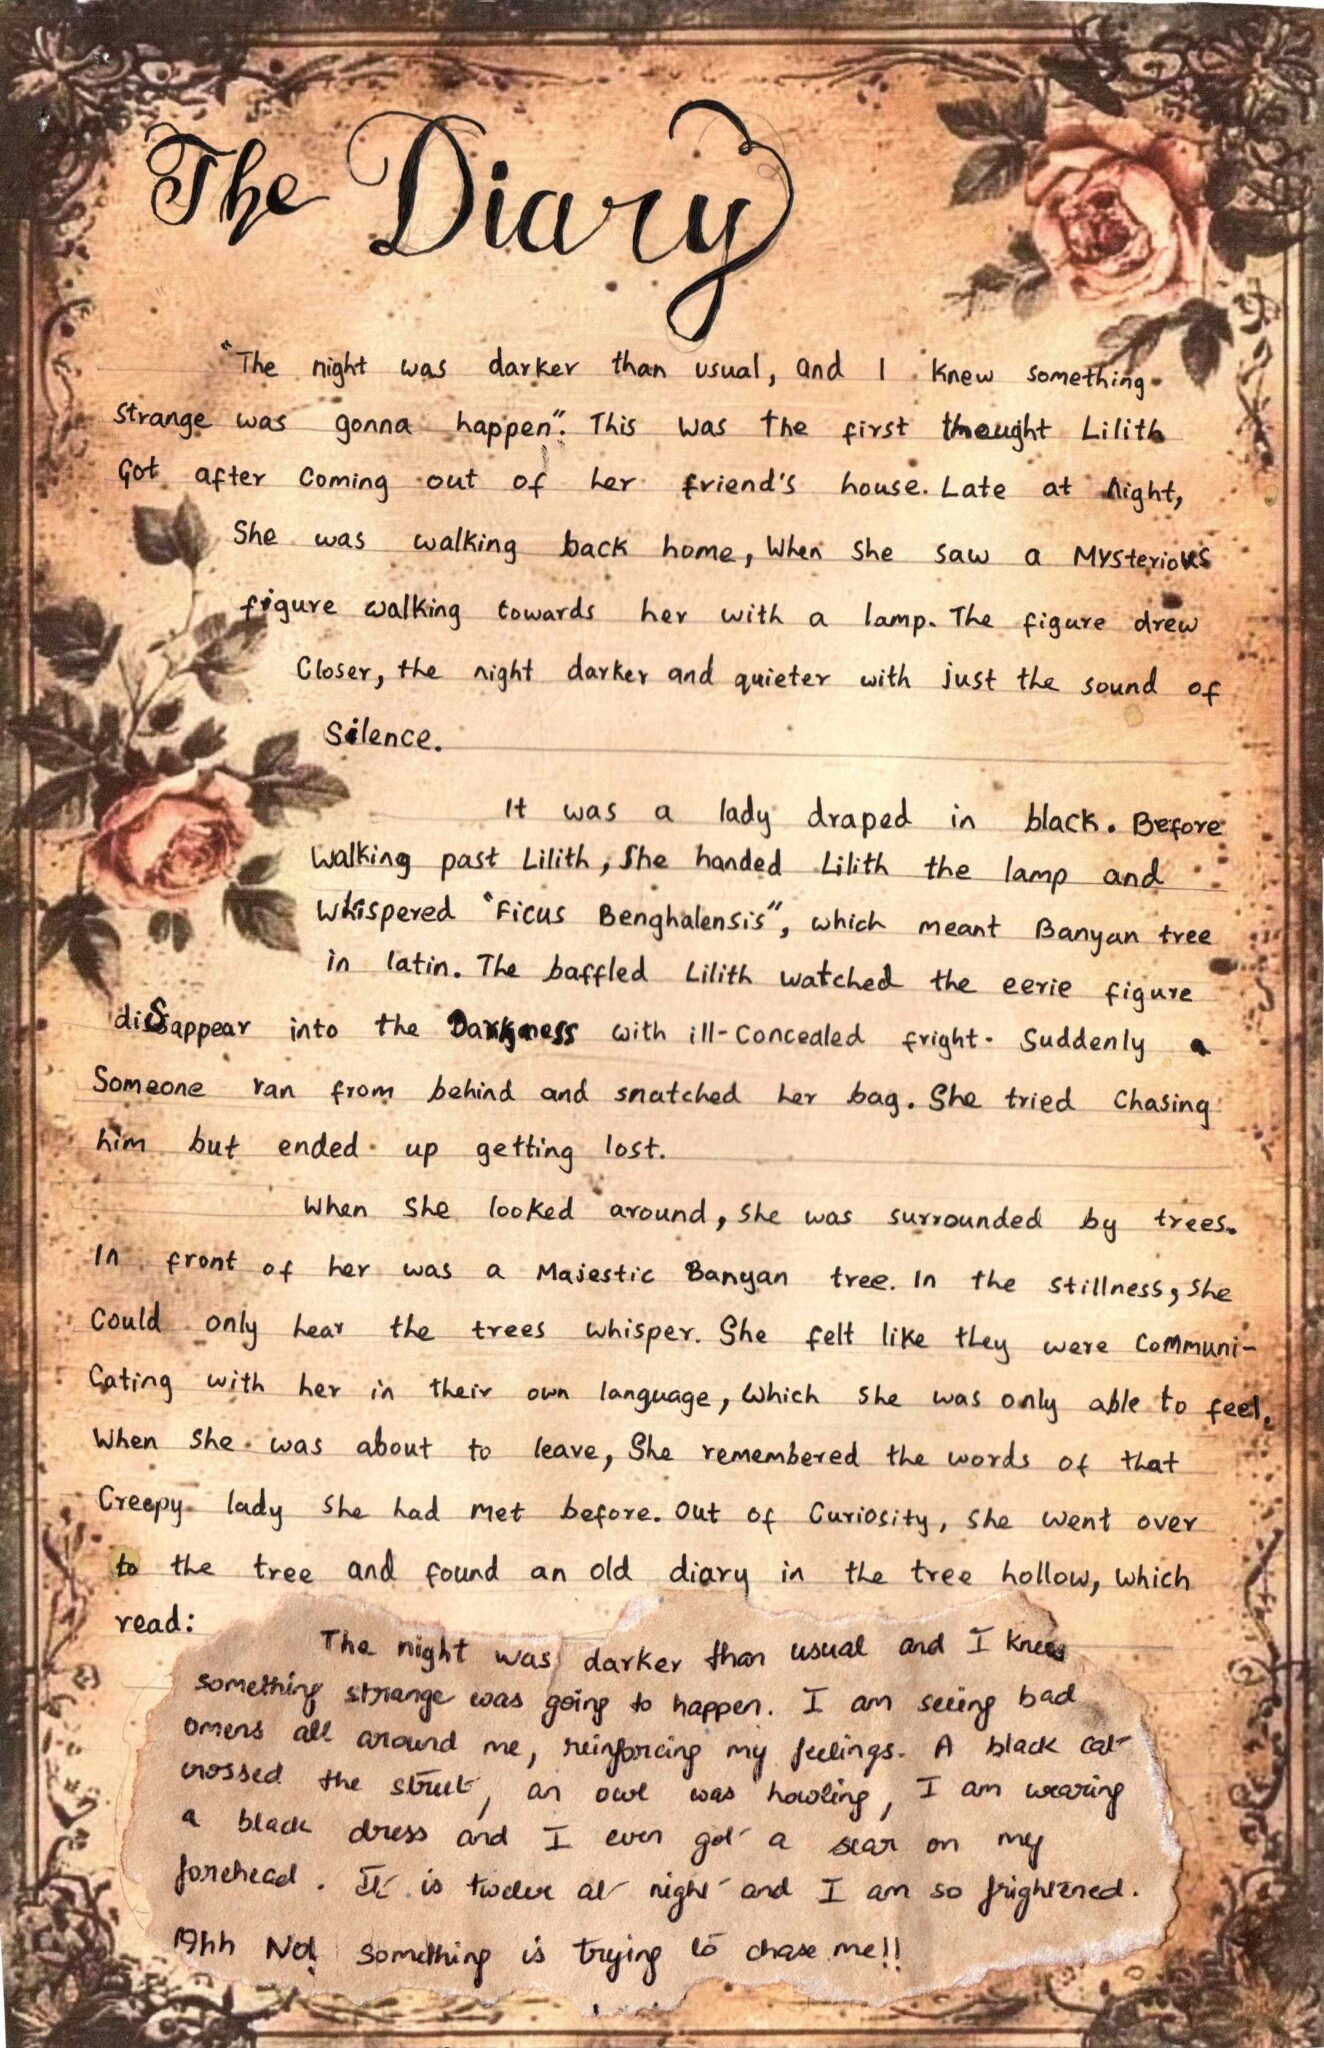 The Diary
"The night was darker than usual, and I knew something
strange was gonna happen". This was the first thought Lilith
Got after coming out of her friend's house. Late at Night,
She was walking back home, When she saw a Mysterious
figure walking towards her with a lamp. The figure drew
Closer, the night darker and quieter with just the sound of
Silence.
It was a lady draped in black. Before
Walking past Lilith, She handed Lilith the lamp and
Whispered "Ficus Benghalensis", which meant Banyan tree
in latin. The baffled Lilith watched the eerie figure
disappear into the Darkness with ill-concealed fright. Suddenly
Someone ran from behind and snatched her bag. She tried Chasing
him but ended up getting lost.
When she looked around, she was surrounded by trees.
In front of her was a Majestic Banyan tree. In the stillness, she
Could only hear the trees whisper. She felt like they were Communi-
Cating with her in their own language, Which she was only able to feel.
When she was about to leave, She remembered the words of that
Creepy lady she had met before. Out of Curiosity, she went over
to the tree and found an old diary in the tree hollow, which
read:
The night was darker than usual and I knew
something strange was going to happen. I am seeing bad
omens all around me, reinforcing my feelings. A black cat
crossed the street, an owl was howling, I am wearing
a black dress and I even got a scar on my
forehead. It is twelve at night and I am so frightened.
Ahh No! something is trying to chase me!!